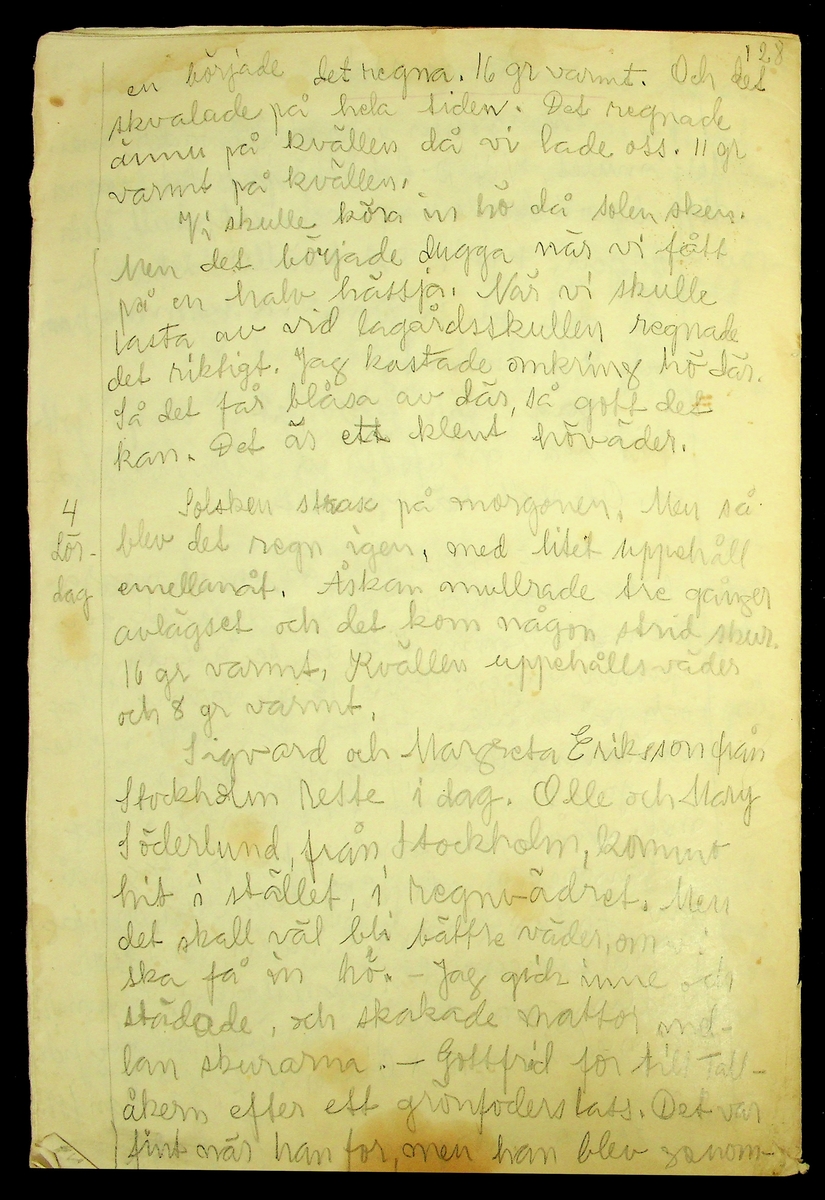 128
en började det regna. 16 gr varmt. Och det
skvalade på hela tiden. Det regnade
ännu på kvällen då vi lade oss. 11 gr
varmt på kvällen.
Vi skulle köra in hö då solen sken.
Men det började dugga när vi fått
på en halv hässja. När vi skulle
lasta av vid lagårdsskullen regnade
det riktigt. Jag kastade omkring hö där.
Så det får blåsa av där, så gott det
kan. Det är ett klent höväder.
4 Solsken strax på morgonen. Men så
Lör- blev det regn igen, med litet uppehåll
dag emellanåt. Åskan mullrade tre gånger
avlägset och det kom någon strid skur.
16 gr varmt. Kvällen uppehållsväder
och 8 gr varmt.
Sigvard och Margreta Eriksson från
Stockholm reste i dag. Olle och Mary
Söderlund, från Stockholm, kommo
hit i stället, i regnvädret. Men
det skall väl bli bättre väder, om vi
ska få in hö. - Jag gick inne och
städade, och skakade mattor mel-
lan skurarna. - Gottfrid for till Tall-
åkern efter ett grönfoderslass. Det var
fint när han for, men han blev genom-